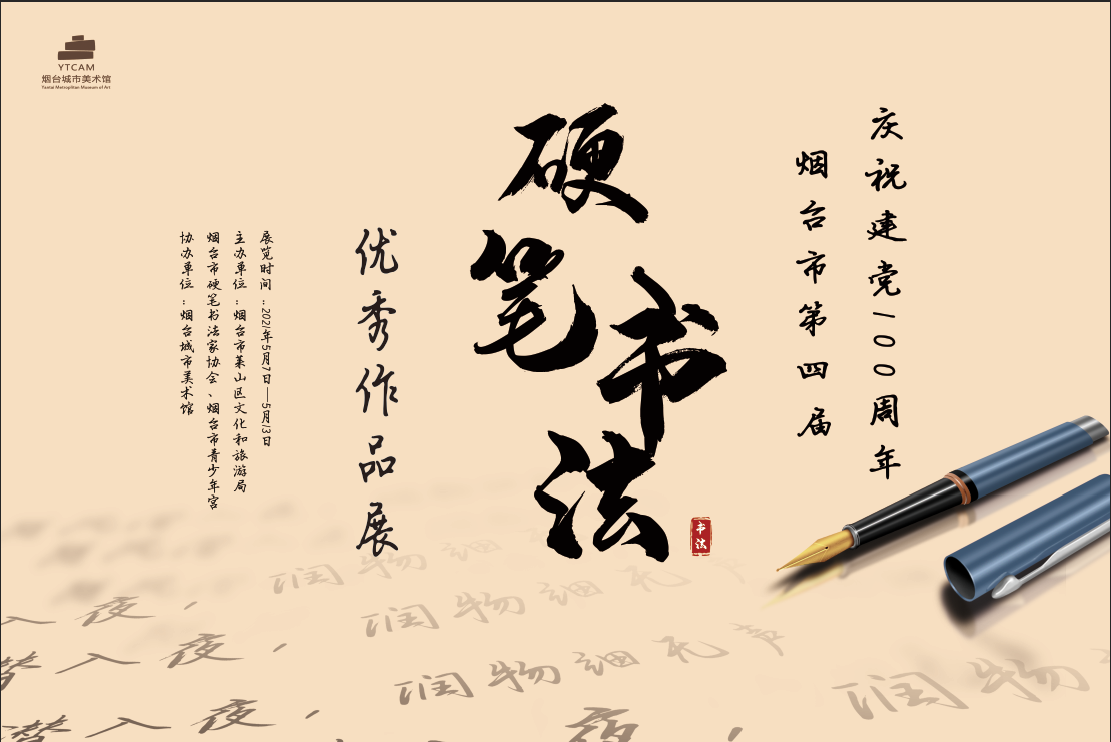 YTCAM
烟台城市美术馆
Yantai Metroplitan Museum of Art
庆祝建党100周年
烟台市第四届
硬笔书法
书法
优秀作品展
展览时间：2021年5月7日—5月13日
主办单位：烟台市莱山区文化和旅游局
烟台市硬笔书法家协会、烟台市青少年宫
协办单位：烟台城市美术馆
润物细无
入夜，
润物细无声
潜入夜，
润物细无声
润物
潜入夜，
夜